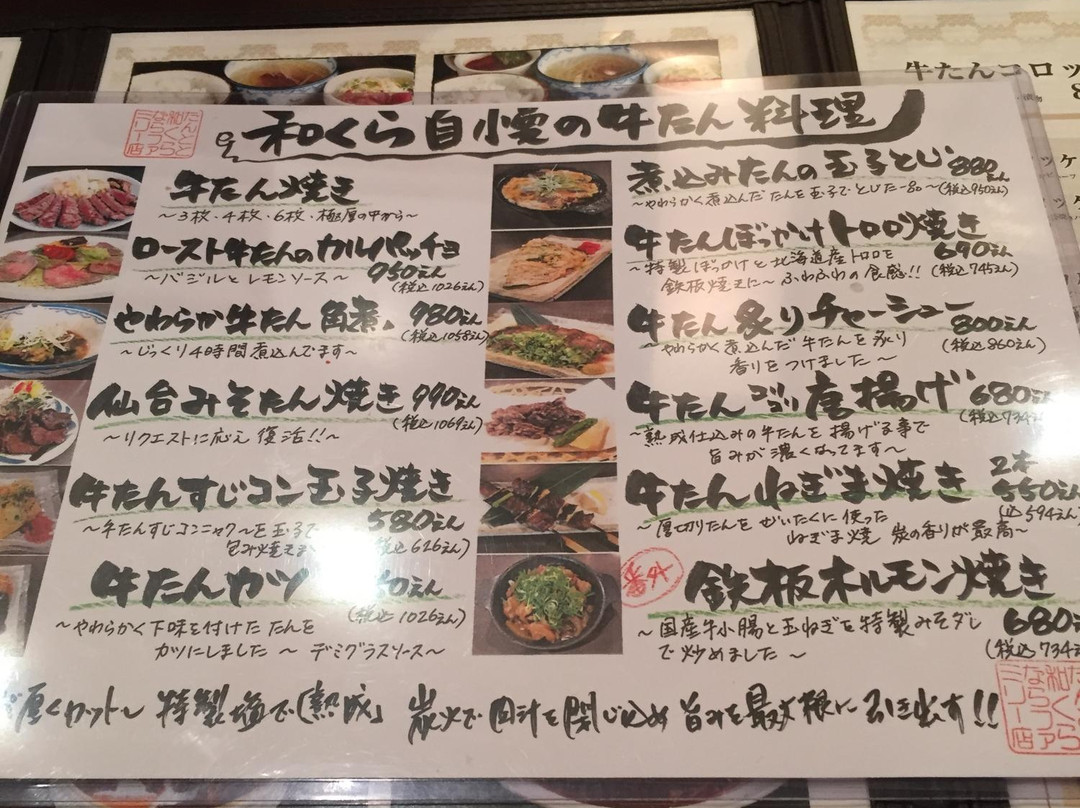 牛たんコロッ
和くら自慢の牛たん料理
たんとと
和くら
ならファ
ミリー店
牛たん焼き
〜3枚、4枚、6枚、極厚の中から〜
ロースト牛たんのカルパッチョ
950えん
〜バジルとレモンソース〜
(税込1026えん)
やわらか牛たん角煮 980えん
(税込1058えん)
〜じっくり4時間煮込んでます〜
仙台みそたん焼き 990えん
(税込1069えん)
〜リクエストに応え復活!!〜
牛たんすじコン玉子焼き
580えん
〜牛たんすじコンニャク〜を玉子で
包み焼き
(税込626えん)
牛たんカツ
0えん
(税込1026えん)
〜やわらかく下味を付けたたんを
カツにしました〜デミグラスソース〜
煮込みたんの玉子とじ 880えん
〜やわらかく煮込んだたんを玉子でとじた一品〜(税込950えん)
牛たんぼっかけトロロ焼き
690えん
(税込745えん)
〜特製ぼっかけと北海道産トロロを
鉄板焼きに〜ふわふわの食感!!
牛たん炙りチャーシュー
800えん
(税込860えん)
やわらかく煮込んだ牛たんを炙り
香りをつけました〜
牛たんゴロゴロ唐揚げ 680えん
(税込734え
〜熟成仕込みの牛たんを揚げる事で
旨みが濃くなってます〜
牛たんねぎま焼き 2本
550えん
込594えん)
〜厚切りたんをぜいたくに使った
ねぎま焼 炭の香りが最高〜
番外
鉄板ホルモン焼き
680
(税込734え
〜国産牛小腸と玉ねぎを特製みそダレ
で炒めました〜
厚くカット〜 特製塩で「熟成」 炭火で肉汁を閉じ込め旨みを最大限に引き出す!!
和くら
ならファ
ミリー店